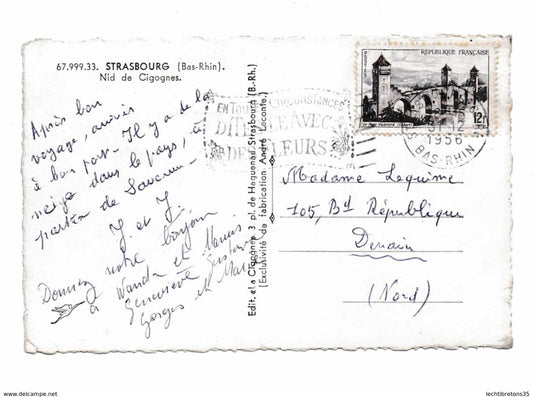 67.999.33. STRASBOURG (Bas-Rhin).
Nid de Cigognes.
Après bon
voyage, arrivés
à bon port. Il y a de la
neige dans le pays, à
partir de Saverne.
J. et J.
Donnez notre bonjour
à Wanda et Marius
Geneviève Gustave
Georges et Marie
Edit. "La Cigogne" 3 pl. de Haguenau Strasbourg (B.-Rh.)
(Exclusivité de fabrication André Leconte.)
REPUBLIQUE FRANÇAISE
POSTES
12F
EN TOUTES CIRCONSTANCES
DITES-LE AVEC
DES FLEURS
31-12
1956
BAS-RHIN
Madame Lequime
105, Bd République
Denain
(Nord)
lechtibretons35